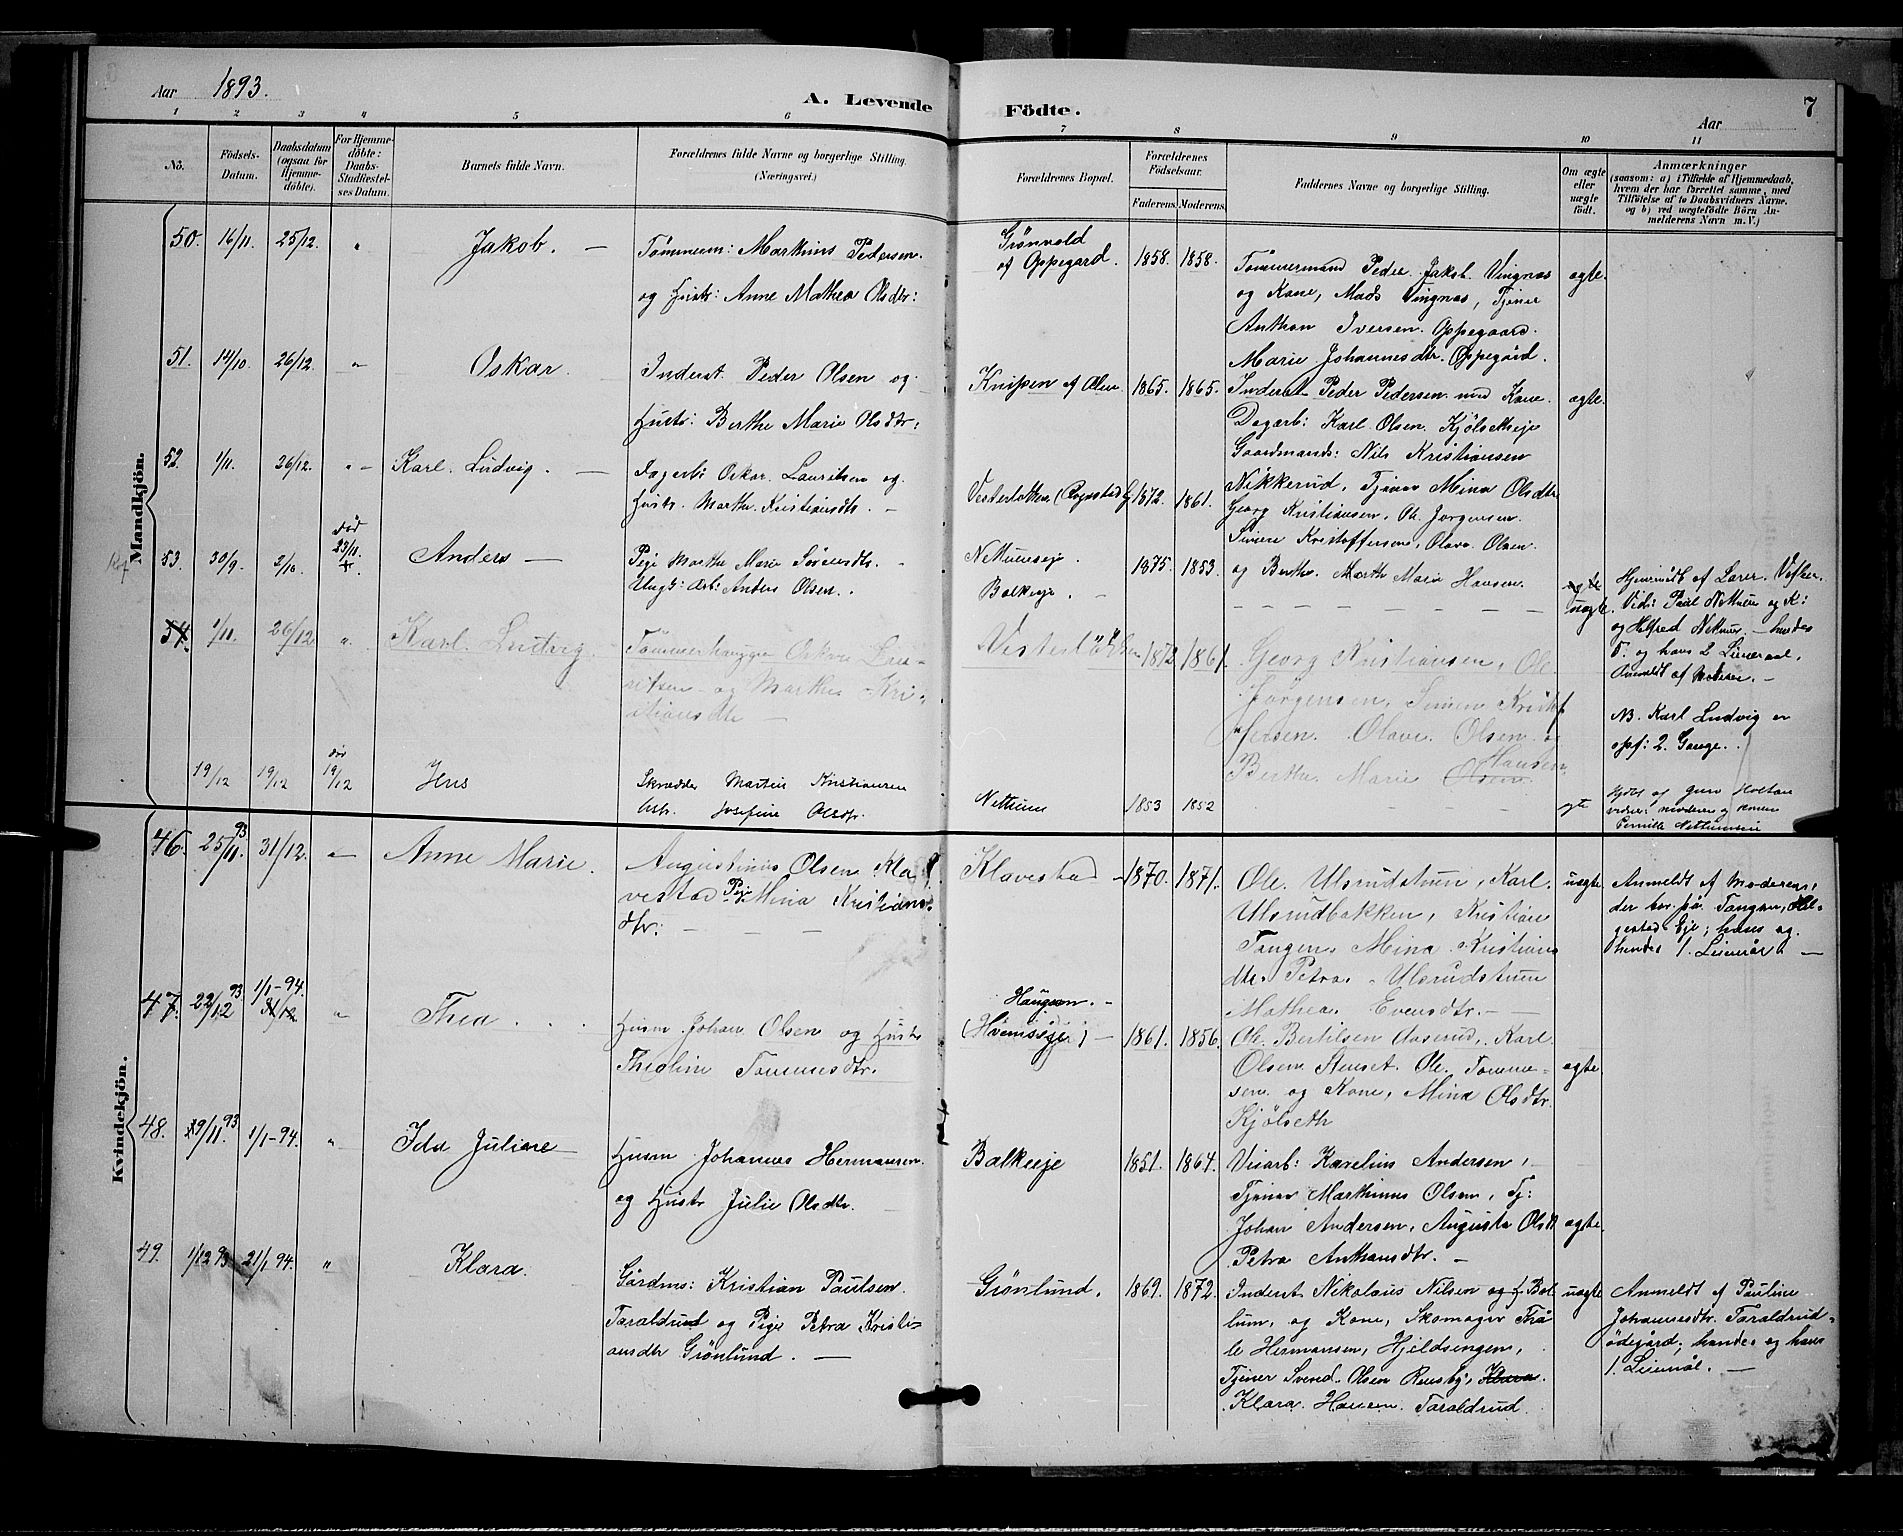 Aar 1893.
A. Levende Födte.
7
Aar
1 2 3 4 5 6 7 8 9 10 11
No.
Födsels-Datum.
Daabsdatum (ogsaa for Hjemme-döbte).
For Hjemme-döbte: Daabs-Stadfæstel-ses Datum.
Barnets fulde Navn.
Forældrenes fulde Navne og borgerlige Stilling. (Næringsvei.)
Forældrenes Bopæl.
Forældrenes Födselsaar.
Faderens. Moderens.
Faddernes Navne og borgerlige Stilling.
Om ægte eller uægte födt.
Anmærkninger
(saasom: a) i Tilfælde af Hjemmedaab,
hvem der har forrettet samme, med
Tilföielse af to Daabsvidners Navne,
og b) ved uægtefödte Börn An-
melderens Navn m.V.)
Mandkjön.
50. 16/11. 25/12. " Jakob. —
Tømmerm: Marthinus Pedersen.
og Hustr: Anne Mathea Olsdtr:
Grönvold
af Oppegard. 1858. 1858.
Tömmermand Peder Jakob. Vingnæs
og Kone, Mads Vingnæs, Tjener
Anthon Iversen. Oppegaard.
Marie Johannesdtr. Oppegård.
ægte.
51. 14/10. 26/12. " Oskar.
Inderst. Peder Olsen og
Hustr: Berthe Marie Olsdtr:
Knipen af Alm. 1865. 1865.
Inderst Peder Pedersen med Kone.
Dagarb: Karl Olsen. Kjölsetheje
Gaardmands: Nils Kristiansen
Nikkerud, Tjener Mina Olsdtr
ægte.
52. 1/11. 26/12. " Karl. Ludvig. —
Dagarb: Oskar Lauritsen og
Hustr. Marthe Kristiansdtr. —
1872. 1861.
Georg Kristiansen, Ol. Jørgensen.
Simen Kristoffersen, Olava Olsen.
og Berthe Marie Hansen.
53. 30/9. 2/10. död 23/11. + Anders —
Pige Marthe Marie Sörensdtr.
Ungk: Arb: Anders Olsen.
Nettumseje.
Balkeeje. 1875. 1853.
— — — — — — — —
ægte
uægte.
Hjemmedöbt af Lærer
Vid: Paul Nettum og K:
og Helfred Nettum. — hendes
5. og hans 2. Leiermaal.
Anmeldt af Moderen. —
54. 1/11. 26/12 " Karl. Ludvig.
Tömmerhugger Oskar Lau-
ritsen og Marthe Kri-
stiansdtr —
1872 1861.
Georg Kristiansen, Ole
Jörgensen, Simen Kristof
fersen. Olava Olsen og
Berthe. Marie Olsen. Hansen
NB. Karl Ludvig er
opf: 2. Gange.
19/12 19/12 död 19/12 Jens
Skrædder Martin Kristiansen
Hstr. Josefine Olsdtr.
Nettum 1853 1852
— — —
gte
Hjdbt af Holtan
vidner: moderen og konen
Pernille Nettumseie
Kvindekjön.
46. 25/11. 93 31/12. " Anne Marie.
Augustinus Olsen Kla-
vestad Pige Mina Kristians-
dtr: — — —
Klavestad — 1870. 1871.
Ole. Ulsrudstuen, Karl.
Ulsrudbakken, Kristian
Tangen, Mina Kristians
dtr. Petra. Ulsrudstuen
Mathea Evensdtr. —
uægte
Anmeldt af Moderen,
der bor på Tangen, Hel-
gestad Eje; hans og
hendes 1. Leiemål —
47. 22/12 93 1/1-94. 31/12 " Thea . . .
Husm Johan Olsen og Hustr
Theoline Tommesdtr.
Haugen. —
(Hveemseje) — 1861. 1856.
Ole. Bertilsen Aaserud, Karl
Olsen Stenset. Ole. Tomme-
sen. og Kone, Mina Olsdtr.
Kjölseth
ægte.
48. 29/11. 93 1/1-94. " Ida Juliane
Husm Johannes Hermansen.
og Hustr Julie Olsdtr.
Balkeeje 1851. 1864.
Visarb: Karelius Andersen,
Tjener Marthinus Olsen, Tj:
Johan Andersen, Augusta Olsdt
Petra Anthonsdtr. —
ægte.
49. 1/12 93 21/1 94. " Klara.
Gårdms: Kristian Paulsen.
Taraldrud og Pige Petra Kristi-
ansdtr Grönlund. —
Grönlund. 1869. 1872.
Inderst Nikolaus Nilsen og f. Bal-
lum, og Kone, Skomager Thå-
le Hermansen, Hjeldsengen,
Tjener Svend. Olsen Rensby, Klara
Klara. Hansen. Taraldrud
uægte
Anmeldt af Pauline
Johannesdtr. Taraldrud
ödegård; hendes og hans
1. Leiemål. —